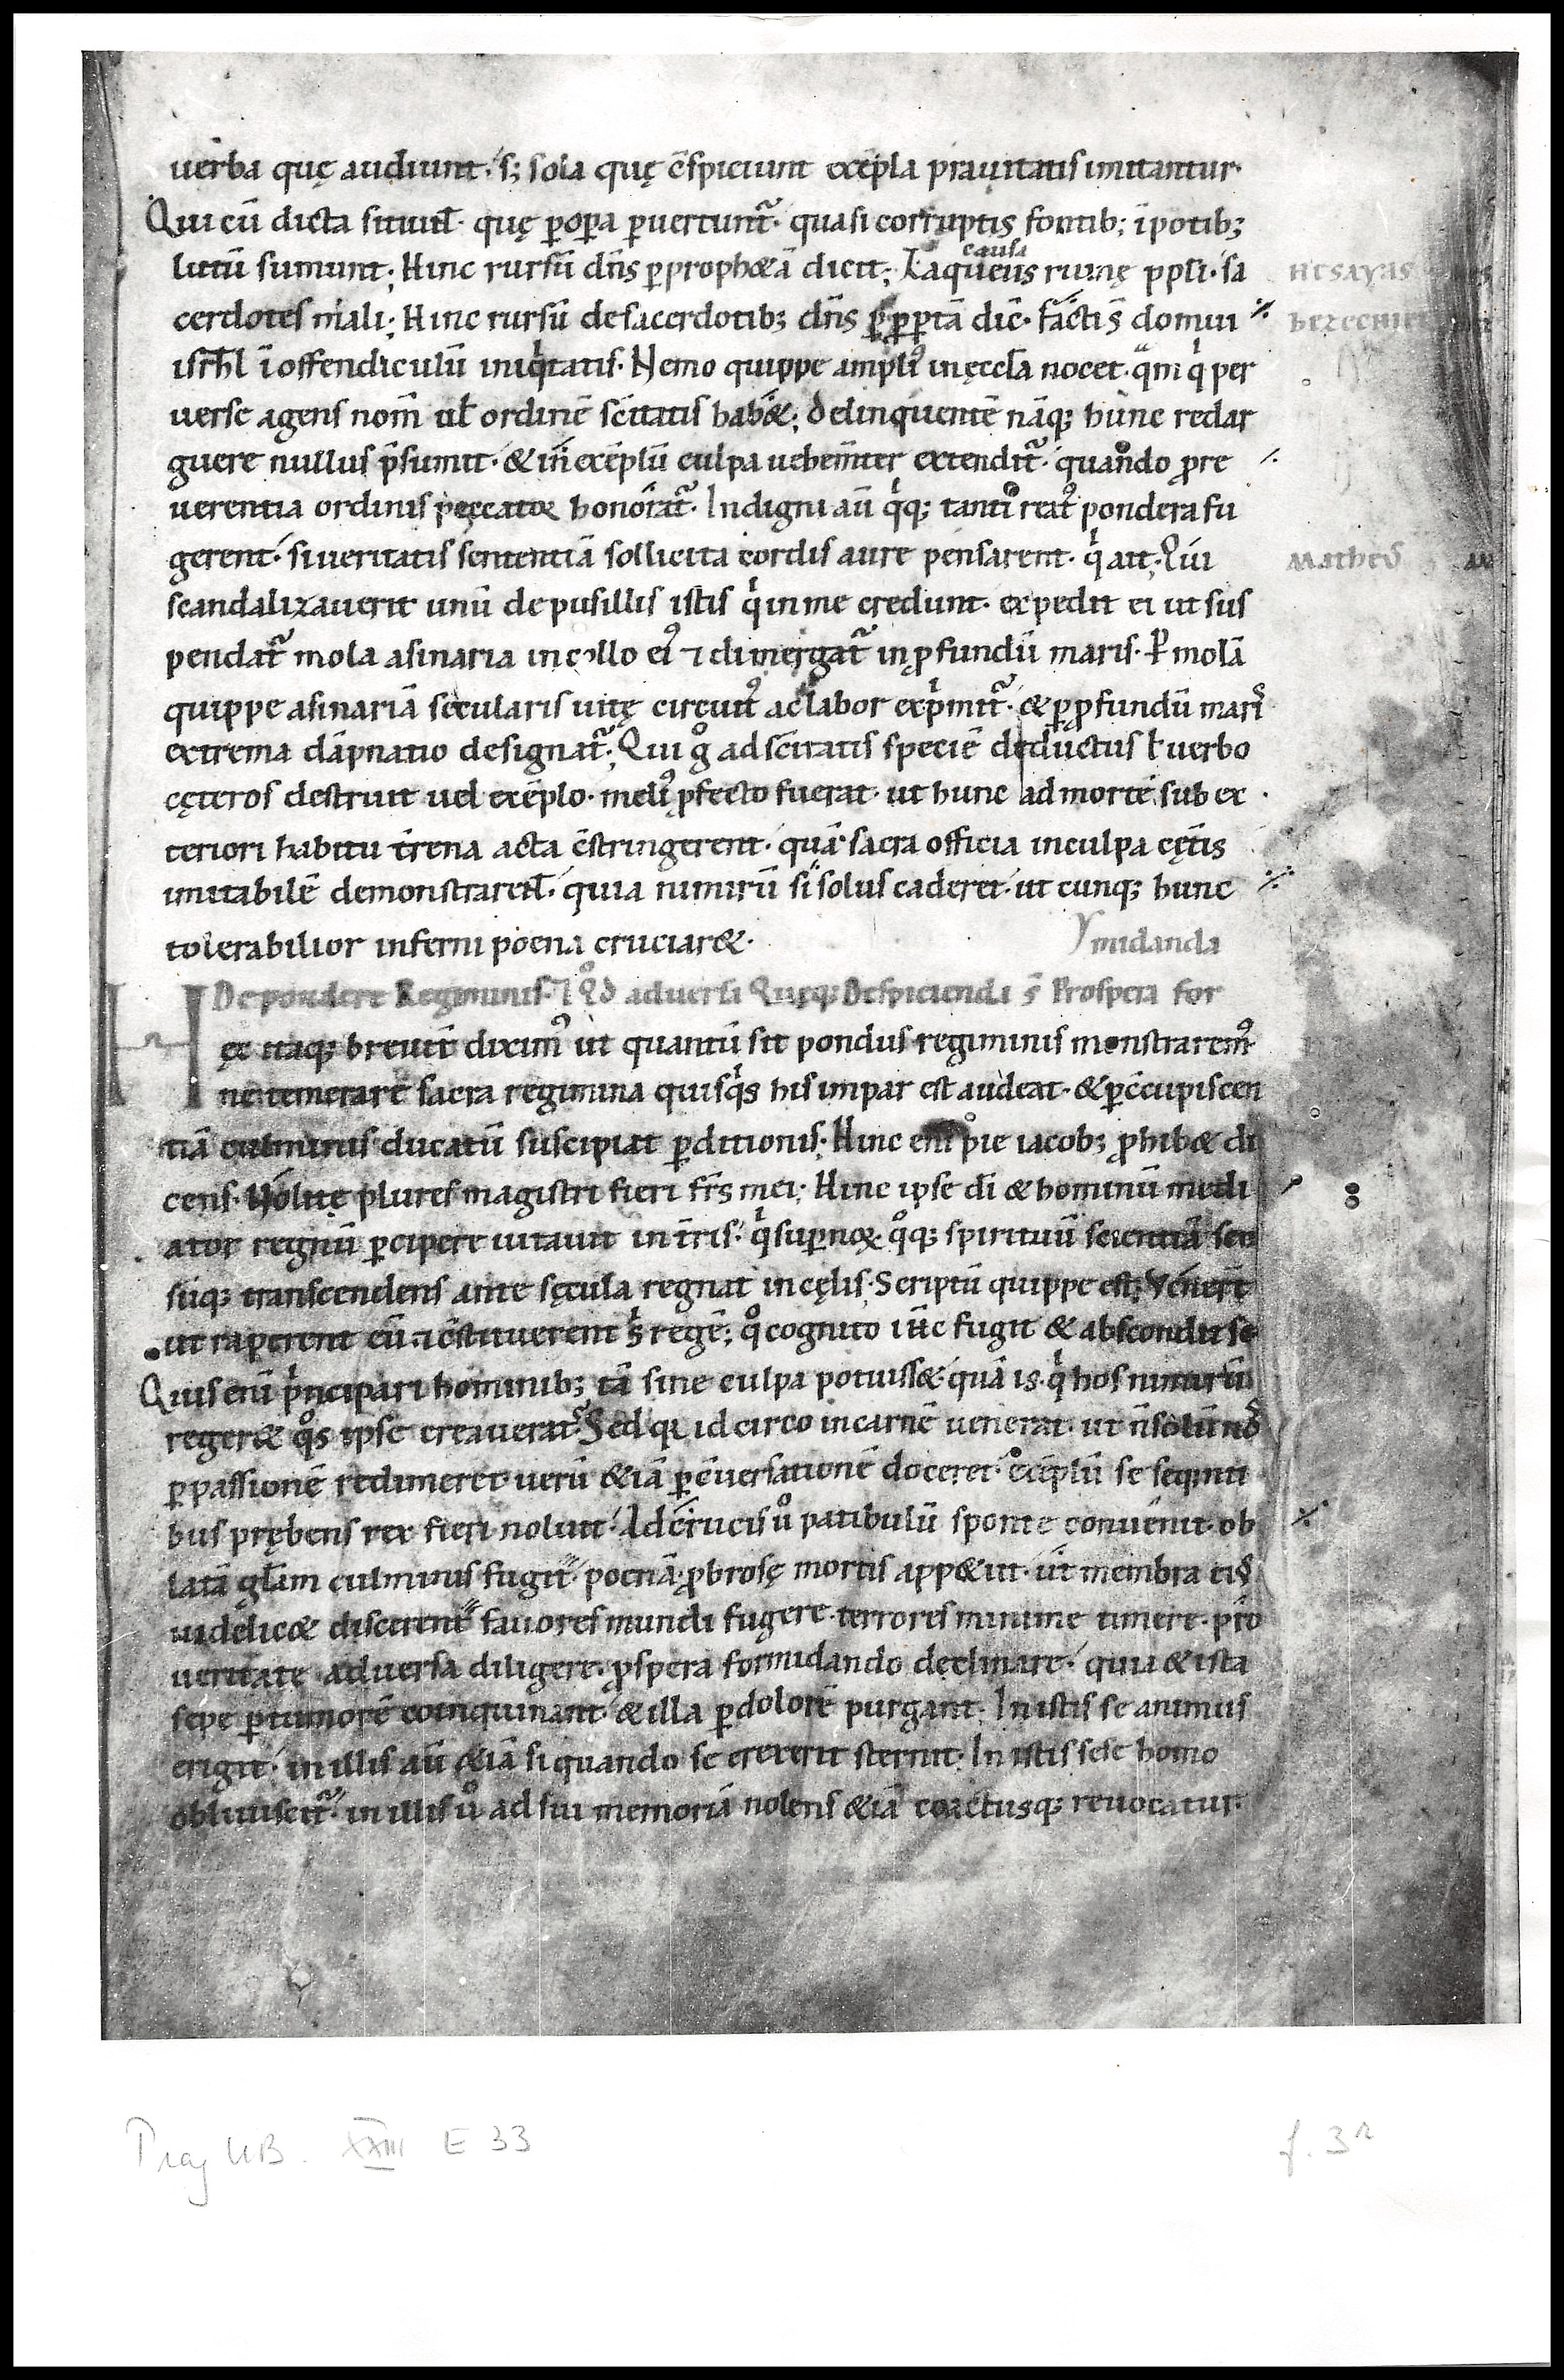 uerba quę audiunt· s; sola quę c̄spiciunt exēpla prauitatis imitantur·
Qui cū dicta sitiunt̄· quę ꝑ oꝑa ꝑuertunt᷑· quasi corruptis fontib; īpotib;
lutū sumunt; Hinc rursū dn̄s ꝑ prophetā dicit; Laqueus ruinę ppl̄i· sa
causa
HESAYAS
cerdotes mali; Hinc rursū de sacerdotib; dn̄s ꝑ ꝓph̄tā dic̄· facti s̄ domui
isrl̄ ī offendiculū iniqͥtatis· Nemo quippe ampliꝰ in ęccl̄a nocet· quā qͥ per
uerse agens nom̄ ul̄ ordinē sc̄itatis hab&; delinquentē nāq; hunc redar
guere nullus p̄sumit· & in exēplū culpa uehem̄ter extendit᷑· quando ꝓ re
uerentia ordinis peccatoꝝ honorat᷑· Indigni aū qͥq; tanti reatꝰ pondera fu
gerent· si ueritatis sententiā sollicita cordis aure pensarent· qͥ ait; Qui
Matheꝰ
scandalizauerit unū de pusillis istis qͥ in me credunt· expedit ei ut sus
pendat᷑ mola asinaria in collo eiꝰ ⁊ dimergat᷑ in ꝓfundū maris· Ꝑ molā
quippe asinariā secularis uitę circuitꝰ ac labor exp̄mit᷑· & ꝑ ꝓfundū mariˢ
extrema dāpnatio designat᷑; Qui gͦ ad sc̄itatis speciē deductus l̄ uerbo
cęteros destruit uel exēplo· meliꝰ ꝓfecto fuerat· ut hunc ad mortē sub ex
teriori habitu t̄rena acta c̄stringerent· quā sacra officia in culpa cęt̄is
imitabilē demonstrarent̄· quia nimirū si solus caderet· utcunq; hunc
tolerabilior inferni poena cruciar&·
midanda
De pondere Regiminis· ⁊ qͦd aduersa Quęq; Despicienda s̄ Prospera for
H
ęc itaq; breuit̄ diximꝰ ut quantū sit pondus regiminis monstraremꝰ
ne temerare sacra regimina quisqͥs his impar est audeat· & ꝑ c̄cupiscen
tiā culminis ducatū suscipiat ꝑditionis· Hinc eni pie iacob; ꝓhib& di
cens· Nolite plures magistri fieri fr̄s mei; Hinc ipse di & hominū medi
ator regnū ꝑcipere uitauit in t̄ris· qͥ suꝑnoꝝ qͦq; spirituū scientiā sen
suq; transcendens ante sęcula regnat in cęlis· Scriptū quippe est; Venert̄
ut raperent eū ⁊ c̄stituerent sͥ regē; qͦ cognito ih̄c fugit & abscondit se
Quis enī pͥncipari hominib; tā sine culpa potuiss&· quā is· qͥ hos nimirū
reger& qͦs ipse creauerat· Sed qꝛ idcirco in carnē uenerat· ut n̄ solū noˢ
ꝑ passionē redimeret uerū &iā ꝑ c̄uersationē doceret· exēplū se sequenti
bus prębens rex fieri noluit· Ad crucis uͦ patibulū sponte conuenit· ob
latā gl̄am culminis fugit· poenā ꝓbrosę mortis app&iit· ut membra eiꝰ
uidelic& discerent fauores mundi fugere· terrores minime timere· pro
ueritate aduersa diligere· ꝓspera formidando declinare· quia & ista
sepe ꝑ tumorē coinquinant· & illa ꝑ dolorē purgant· In istis se animus
erigit· in illis aū &iā si quando se erexerit sternit· In istis sese homo
obliuiscit᷑· in illis uͦ ad sui memoriā nolens &iā coactusq; reuocatur·
Prag UB. XXIII E 33
f. 3r